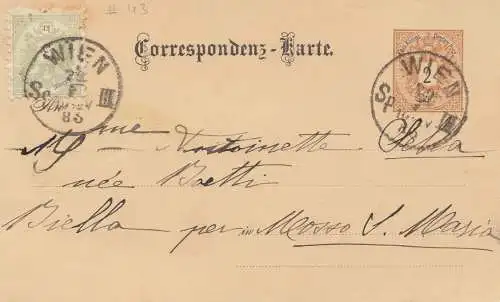 # 43
Correspondenz-Karte.
WIEN
III
85
WIEN
2
III
Mme Antoinette Sella
née Boetti
Biella per in Mosso S. Maria